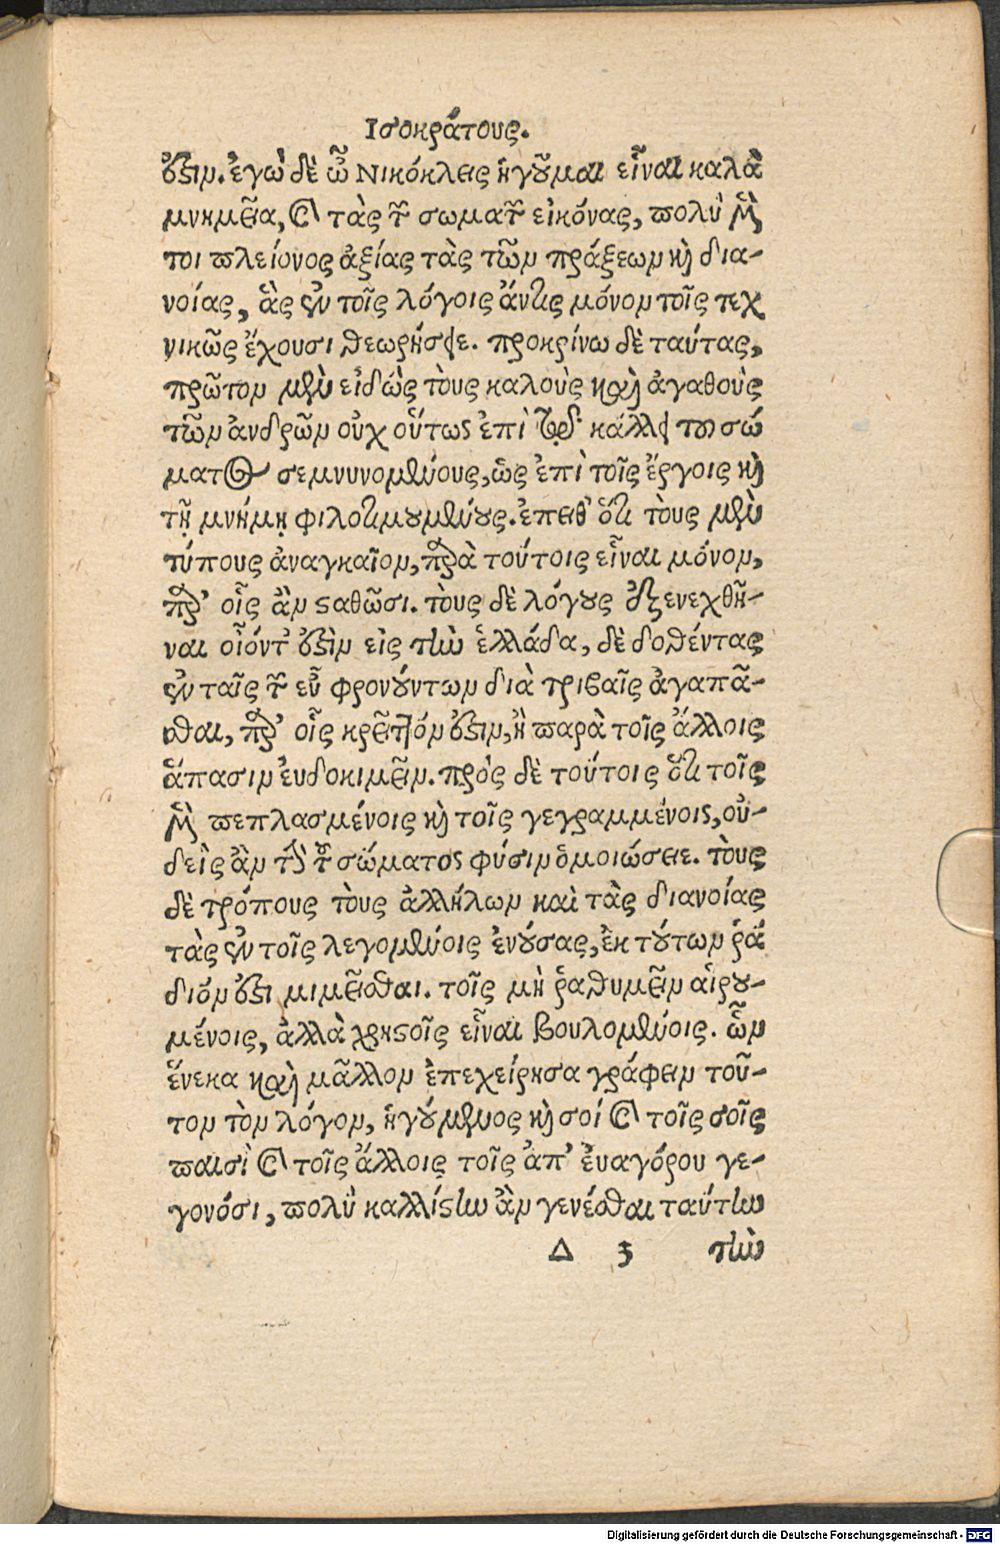 Ισοκράτους.
ὅξιν. ἐγὼ δὲ ὦ Νικόκλεις ἡγοῦμαι εἶναι καλὰ
μνημεῖα, καὶ τὰς τῶν σωμάτων εἰκόνας, πολὺ μέν
τοι πλείονος ἀξίας τὰς τῶν πράξεων καὶ δια-
νοίας, ἃς ἐν τοῖς λόγοις ἄν τις μόνον τοῖς τεχ
νικῶς ἔχουσι θεωρήσειε. προκρίνω δὲ ταύτας,
πρῶτον μὲν εἰδὼς τοὺς καλοὺς καὶ ἀγαθοὺς
τῶν ἀνδρῶν οὐχ οὕτως ἐπὶ τῷ κάλλει του σώ
ματος σεμνυνομένους, ὡς ἐπὶ τοῖς ἔργοις καὶ
τῇ μνήμῃ φιλοτιμουμένους. ἔπειθ' ὅτι τοὺς μὲν
τύπους ἀναγκαῖον, παρὰ τούτοις εἶναι μόνον,
παρ' οἷς ἂν σταθῶσι. τοὺς δὲ λόγους ἐξενεχθῆ-
ναι οἷόντ' ἐστὶν εἰς τὴν ἑλλάδα, δὲ δοθέντας
ἐν ταῖς τῶν εὖ φρονούντων διὰ τριβαῖς ἀγαπᾶ-
σθαι, παρ' οἷς κρεῖττόν ἐστιν, ἢ παρὰ τοῖς ἄλλοις
ἅπασιν εὐδοκιμεῖν. πρὸς δὲ τούτοις ὅτι τοῖς
μὲν πεπλασμένοις καὶ τοῖς γεγραμμένοις, οὐ-
δεὶς ἂν τὴν τοῦ σώματος φύσιν ὁμοιώσειε. τοὺς
δὲ τρόπους τοὺς ἀλλήλων καὶ τὰς διανοίας
τὰς ἐν τοῖς λεγομένοις ἐνούσας, ἐκ τούτων ῥᾴ
διόν ἐστι μιμεῖσθαι. τοῖς μὴ ῥαθυμεῖν αἱρου-
μένοις, ἀλλὰ χρηστοῖς εἶναι βουλομένοις. ὧν
ἕνεκα καὶ μᾶλλον ἐπεχείρησα γράφειν τοῦ-
τον τὸν λόγον, ἡγούμενος καὶ σοί καὶ τοῖς σοῖς
παισὶ καὶ τοῖς ἄλλοις τοῖς ἀπ' ἐυαγόρου γε-
γονόσι, πολὺ καλλίστην ἂν γενέσθαι ταύτην
Δ 3 τὴν
Digitalisierung gefördert durch die Deutsche Forschungsgemeinschaft - DFG